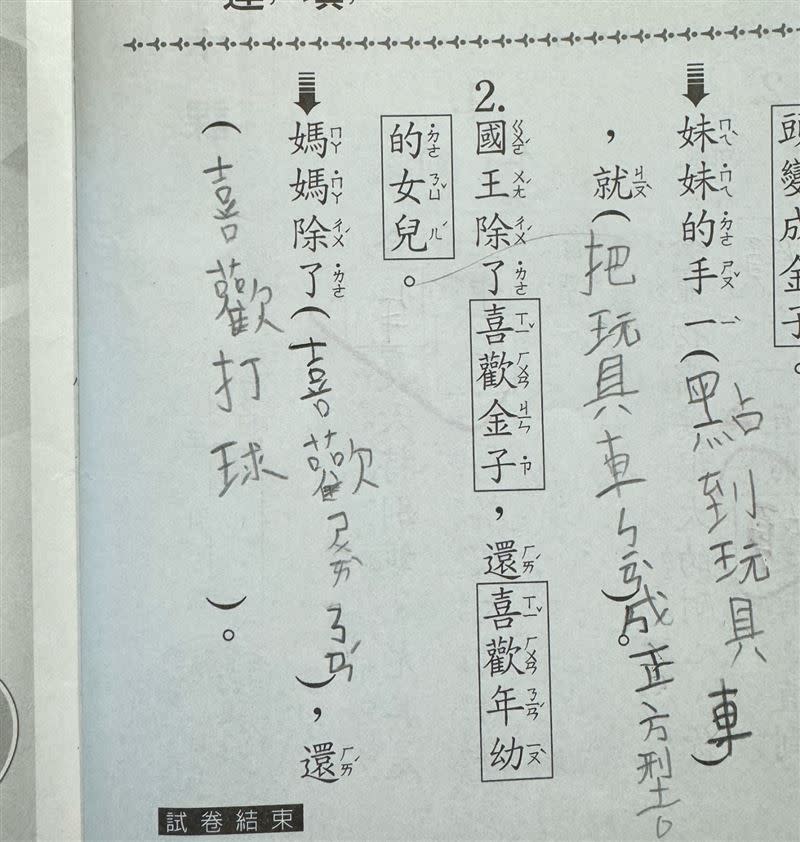 頭變成金子。
妹妹的手一(點到玩具車)
，就(把玩具車ㄅㄧㄢˋ成正方型。)。
2.國王除了喜歡金子，還喜歡年幼
的女兒。
媽媽除了(喜歡ㄕㄨㄞˋㄋㄢˊ)，還
(喜歡打球)。
試卷結束